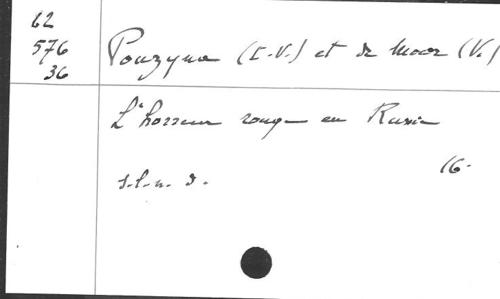 62
576
36
Pouzyna (I.-V.) et de Moor (V.)
L'horreur rouge en Russie
16.
s.l.n.d.